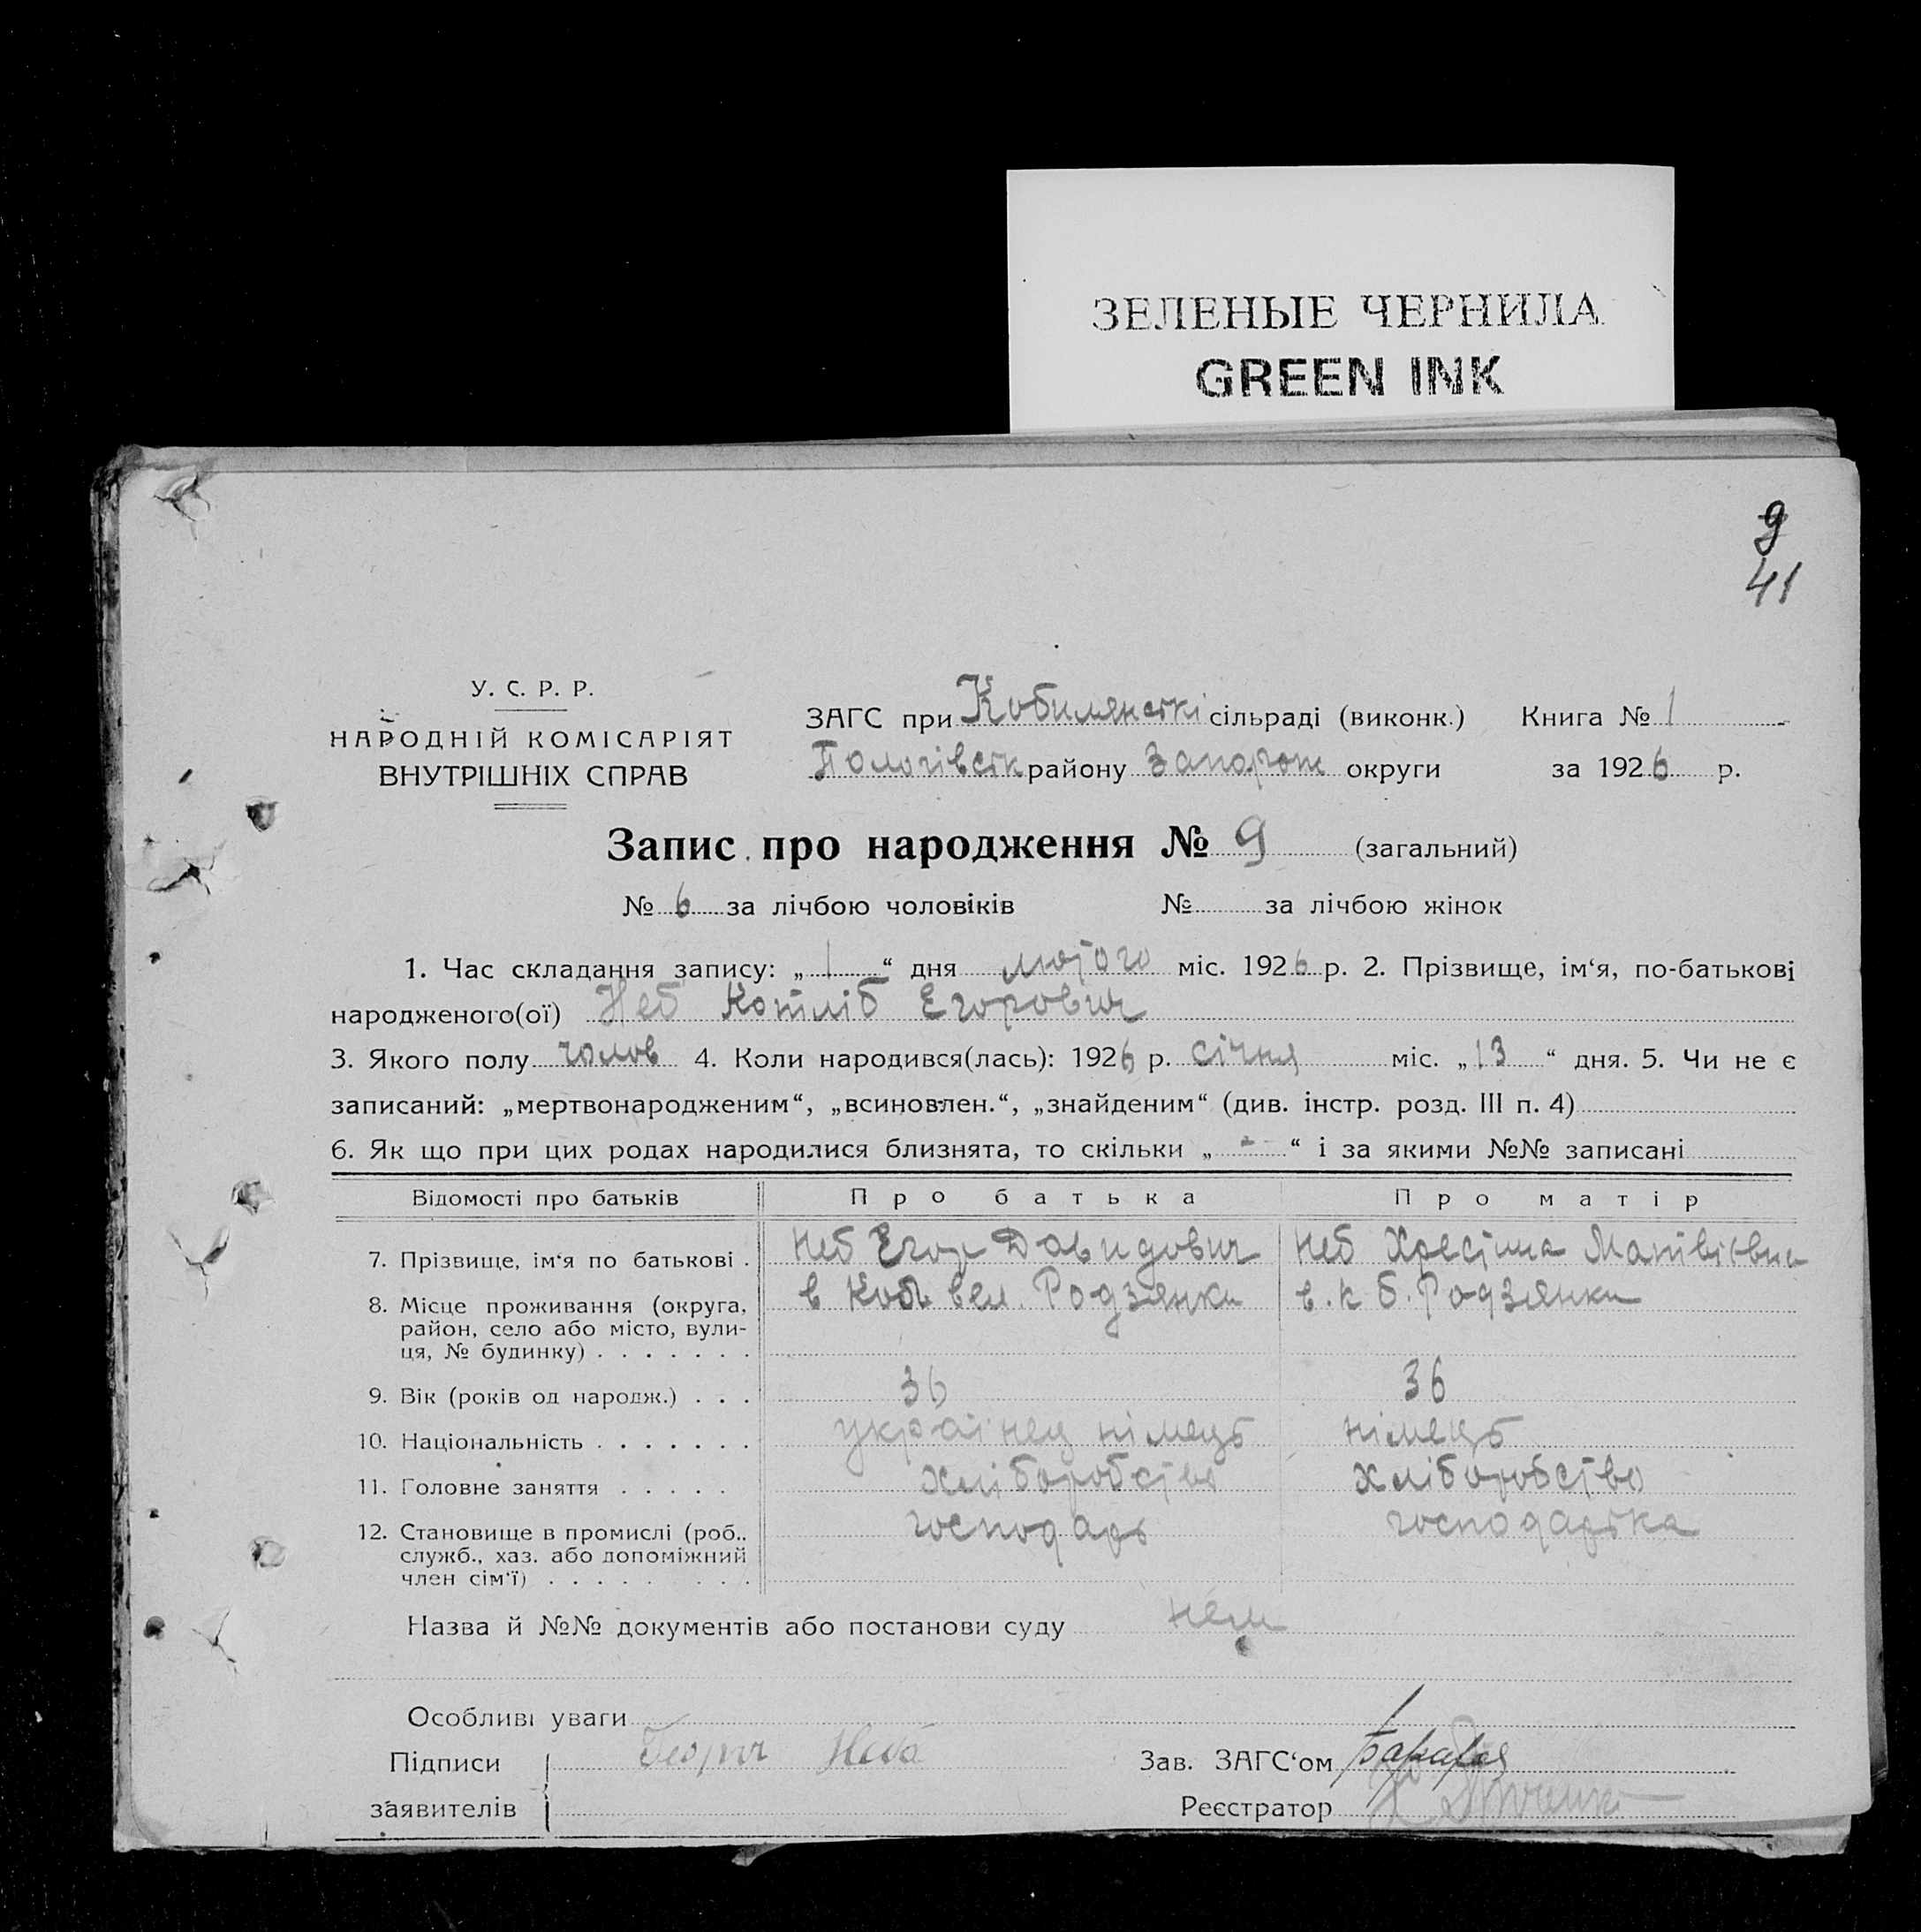 ЗЕЛЕНЫЕ ЧЕРНИЛА
GREEN INK
9
41
У. С. Р. Р.
НАРОДНІЙ КОМІСАРІЯТ
ВНУТРІШНІХ СПРАВ
ЗАГС при Кобилянсткі сільраді (виконк.) Книга № 1
Пологівстк району Запорож округи за 1926 р.
Запис про народження № 9 (загальний)
№ 6 за лічбою чоловіків № за лічбою жінок
1. Час складання запису: „ 1 “ дня лютого міс. 1926 р. 2. Прізвище, ім‘я, по-батькові
народженого(ої) Неб Котліб Егорович
3. Якого полу чолов 4. Коли народився(лась): 1926 р. січня міс. „13 “ дня. 5. Чи не є
записаний: „мертвонародженим“, „всиновлен.“, „знайденим“ (див. інстр. розд. III п. 4)
6. Як що при цих родах народилися близнята, то скільки „ - “ і за якими №№ записані
Відомості про батьків Про батька Про матір
7. Прізвище, ім‘я по батькові . Неб Егор Давидович Неб Хрестіна Матвієвна
8. Місце проживання (округа, в Коб вел. Родзянки в. к б. Родзянки
район, село або місто, вули-
ця, № будинку) . . . . . . .
9. Вік (років од народж.) . . . 36 36
10. Національність . . . . . . . українец німець німець
11. Головне заняття . . . . . хліборобство хліборобство
12. Становище в промислі (роб.. господарь господарька
служб., хаз. або допоміжний
член сім‘ї) . . . . . . . .
Назва й №№ документів або постанови суду нем
Особливі уваги
Підписи Георг Неба Зав. ЗАГС‘ом
заявителів Реєстратор